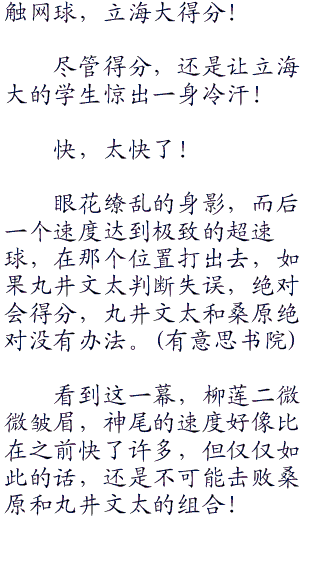 触网球，立海大得分！
尽管得分，还是让立海
大的学生惊出一身冷汗！
快，太快了！
眼花缭乱的身影，而后
一个速度达到极致的超速
球，在那个位置打出去，如
果丸井文太判断失误，绝对
会得分，丸井文太和桑原绝
对没有办法。(有意思书院)
看到这一幕，柳莲二微
微皱眉，神尾的速度好像比
在之前快了许多，但仅仅如
此的话，还是不可能击败桑
原和丸井文太的组合！